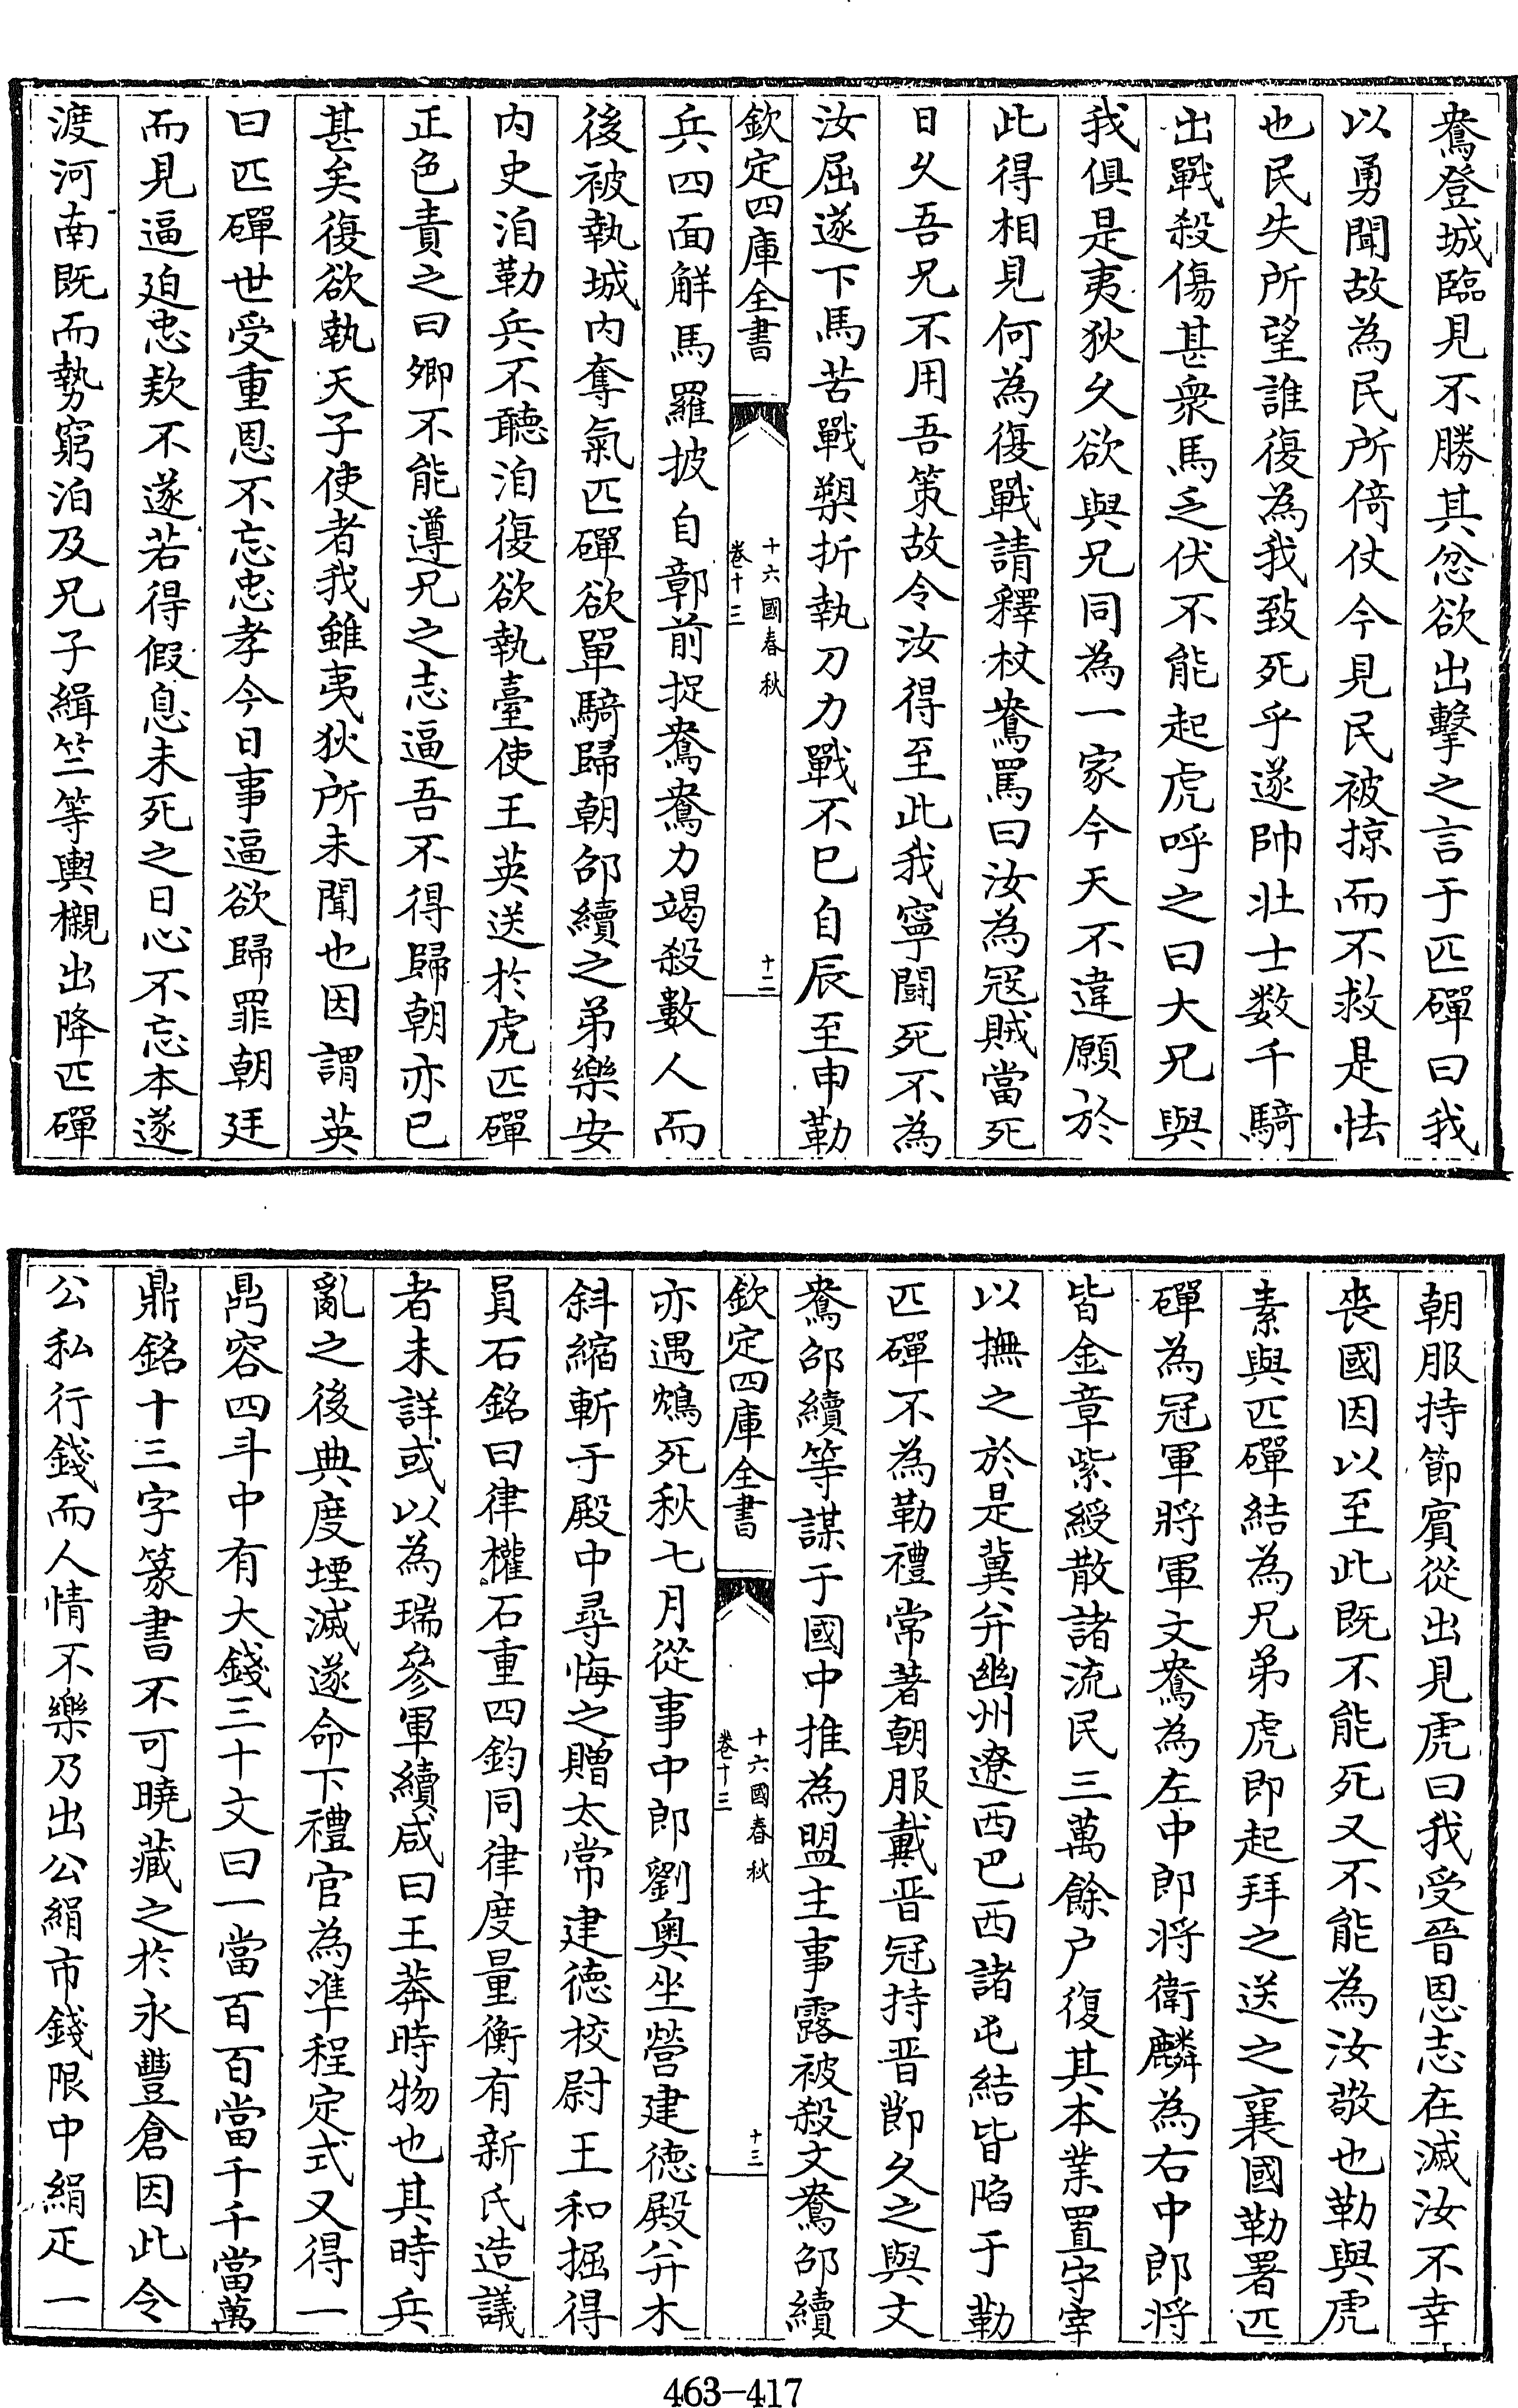 鴦登城臨見不勝其忿欲出擊之言于匹磾曰我
以勇聞故為民所倚仗今見民被掠而不救是怯
也民失所望誰復為我致死乎遂帥壯士数千騎
出戰殺傷甚衆馬乏伏不能起虎呼之曰大兄與
我俱是夷狄久欲與兄同為一家今天不違願於
此得相見何為復戰請釋杖鴦罵曰汝為冦賊當死
日久吾兄不用吾策故令汝得至此我寧鬬死不為
汝屈遂下馬苦戰槊折執刀力戰不已自辰至申勒
欽定四庫全書
十六國春秋
卷十三
十二
兵四面解馬羅披自鄣前捉鴦鴦力竭殺數人而
後被執城内奪氣匹磾欲單騎歸朝邵續之弟樂安
内史洎勒兵不聽洎復欲執臺使王英送於虎匹磾
正色責之曰卿不能遵兄之志逼吾不得歸朝亦已
甚矣復欲執天子使者我雖夷狄所未聞也因謂英
曰匹磾世受重恩不忘忠孝今日事逼欲歸罪朝廷
而見逼廹忠欵不遂若得假息未死之日心不忘本遂
渡河南既而勢窮洎及兄子緝竺等輿櫬出降匹磾
朝服持節賓從出見虎曰我受晉恩志在滅汝不幸
喪國因以至此既不能死又不能為汝敬也勒與虎
素與匹磾結為兄弟虎即起拜之送之襄國勒署匹
磾為冠軍將軍文鴦為左中郎將衛麟為右中郎將
皆金章紫綬散諸流民三萬餘户復其本業置守宰
以撫之於是冀并幽州遼西巴西諸屯結皆陷于勒
匹磾不為勒禮常著朝服戴晋冠持晋節久之與文
鴦邵續等謀于國中推為盟主事露被殺文鴦邵續
欽定四庫全書
十六國春秋
卷十三
十三
亦遇鴆死秋七月從事中郎劉奥坐營建德殿并木
斜縮斬于殿中尋悔之贈太常建德校尉王和掘得
員石銘曰律權石重四鈞同律度量衡有新氏造議
者未詳或以為瑞參軍續咸曰王莽時物也其時兵
亂之後典度堙滅遂命下禮官為準程定式又得一
鼎容四斗中有大錢三十文曰一當百百當千千當萬
鼎銘十三字篆書不可曉藏之於永豐倉因此令
公私行錢而人情不樂乃出公絹市錢限中絹疋一
463-417